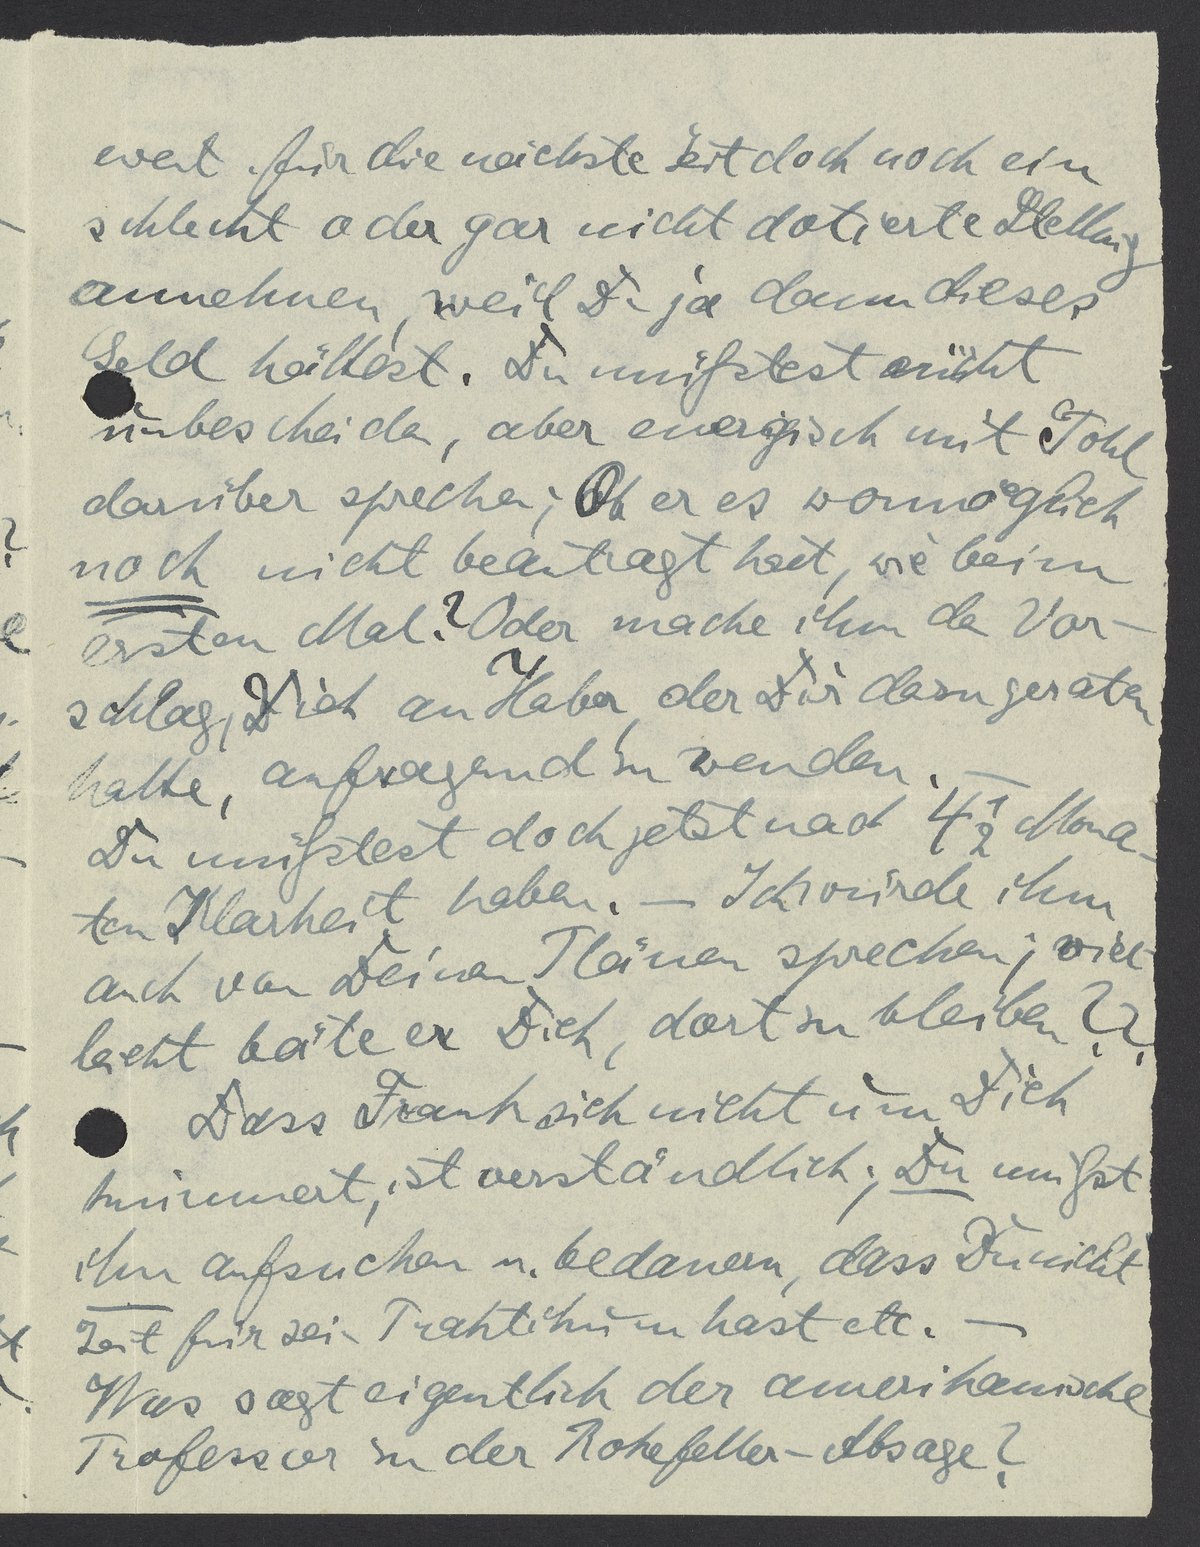 evert. für die nächste Zeit doch noch ein
schlecht oder gar nicht dotierte Stellung
annehmen, weil Du ja dann dieses
Geld hättest. Du müßtest nicht
unbescheiden, aber energisch mit Pohl
darüber sprechen; Ob er es womöglich
noch nicht beantragt hat, wie beim
ersten Mal? Oder mache ihm den Vor-
schlag, Dich an Haber, der Dir dazu geraten
hatte, anfragend zu wenden. —
Du müßtest doch jetzt nach 4 1/2 Mona-
ten Klarheit haben. — Ich würde ihm
auch von Deinen Plänen sprechen; viel-
leicht bäte er Dich, dort zu bleiben??
Dass Frank sich nicht um Dich
kümmert, ist verständlich; Du mußt
ihn aufsuchen u. bedauern, dass Du nicht
Zeit für sein Praktikum hast etc. —
Was sagt eigentlich der amerikanische
Professor zu der Rokefeller-Absage?